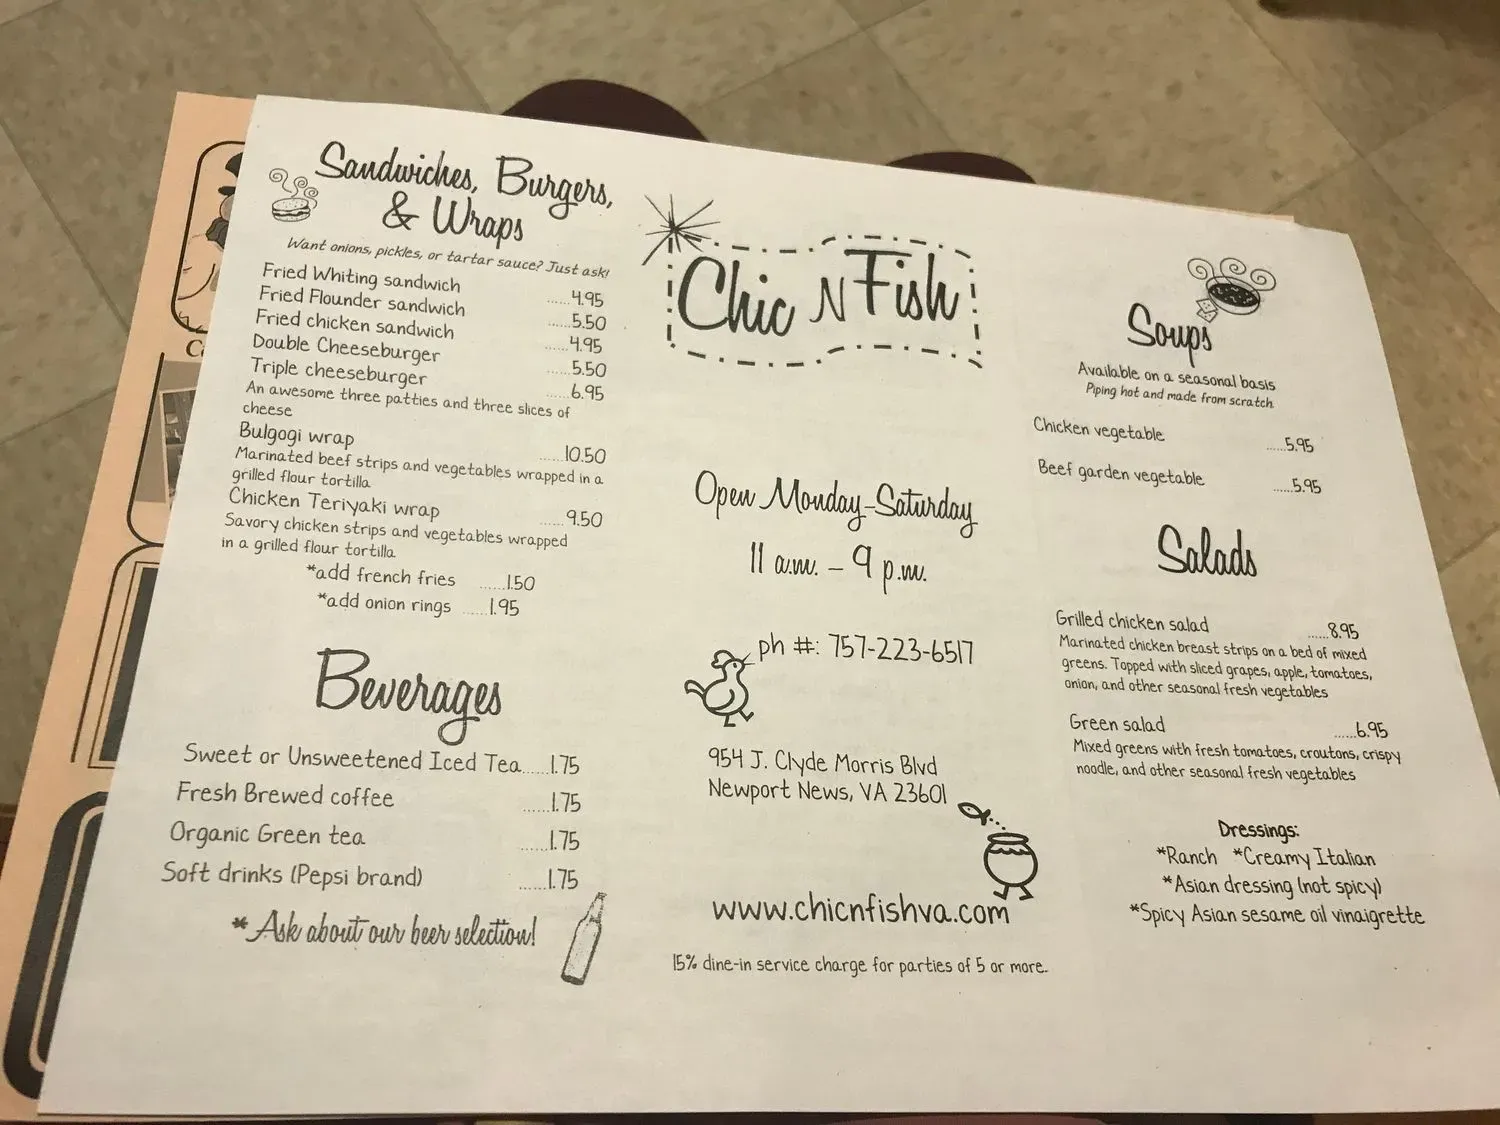 Sandwiches, Burgers,
& Wraps
Want onions, pickles, or tartar sauce? Just ask!
Fried Whiting sandwich ......4.95
Fried Flounder sandwich ......5.50
Fried chicken sandwich ......4.95
Double Cheeseburger ......5.50
Triple cheeseburger ......6.95
An awesome three patties and three slices of
cheese
Bulgogi wrap ......10.50
Marinated beef strips and vegetables wrapped in a
grilled flour tortilla
Chicken Teriyaki wrap ......9.50
Savory chicken strips and vegetables wrapped
in a grilled flour tortilla
*add french fries ......1.50
*add onion rings ......1.95
Beverages
Sweet or Unsweetened Iced Tea......1.75
Fresh Brewed coffee ......1.75
Organic Green tea ......1.75
Soft drinks (Pepsi brand) ......1.75
* Ask about our beer selection!
Chic N Fish
Open Monday-Saturday
11 a.m. - 9 p.m.
ph #: 757-223-6517
954 J. Clyde Morris Blvd
Newport News, VA 23601
www.chicnfishva.com
15% dine-in service charge for parties of 5 or more.
Soups
Available on a seasonal basis
Piping hot and made from scratch.
Chicken vegetable ......5.95
Beef garden vegetable ......5.95
Salads
Grilled chicken salad ......8.95
Marinated chicken breast strips on a bed of mixed
greens. Topped with sliced grapes, apple, tomatoes,
onion, and other seasonal fresh vegetables
Green salad ......6.95
Mixed greens with fresh tomatoes, croutons, crispy
noodle, and other seasonal fresh vegetables
Dressings:
*Ranch *Creamy Italian
*Asian dressing (not spicy)
*Spicy Asian sesame oil vinaigrette